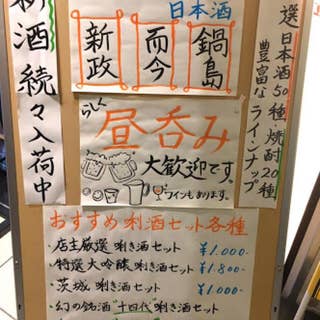 選
日本酒50種焼酎20種
豊富なラインナップ
日本酒
鍋島
而今
新政
新酒続々入荷中
らしく
昼呑み
大歓迎です。
ワインもあります。
おすすめ利酒セット各種
・店主厳選 唎き酒セット ¥1.000-
・特選大吟醸 唎き酒セット ¥1.800-
・茨城 唎き酒セット ¥1.000
・幻の銘酒"十四代"唎き酒セット